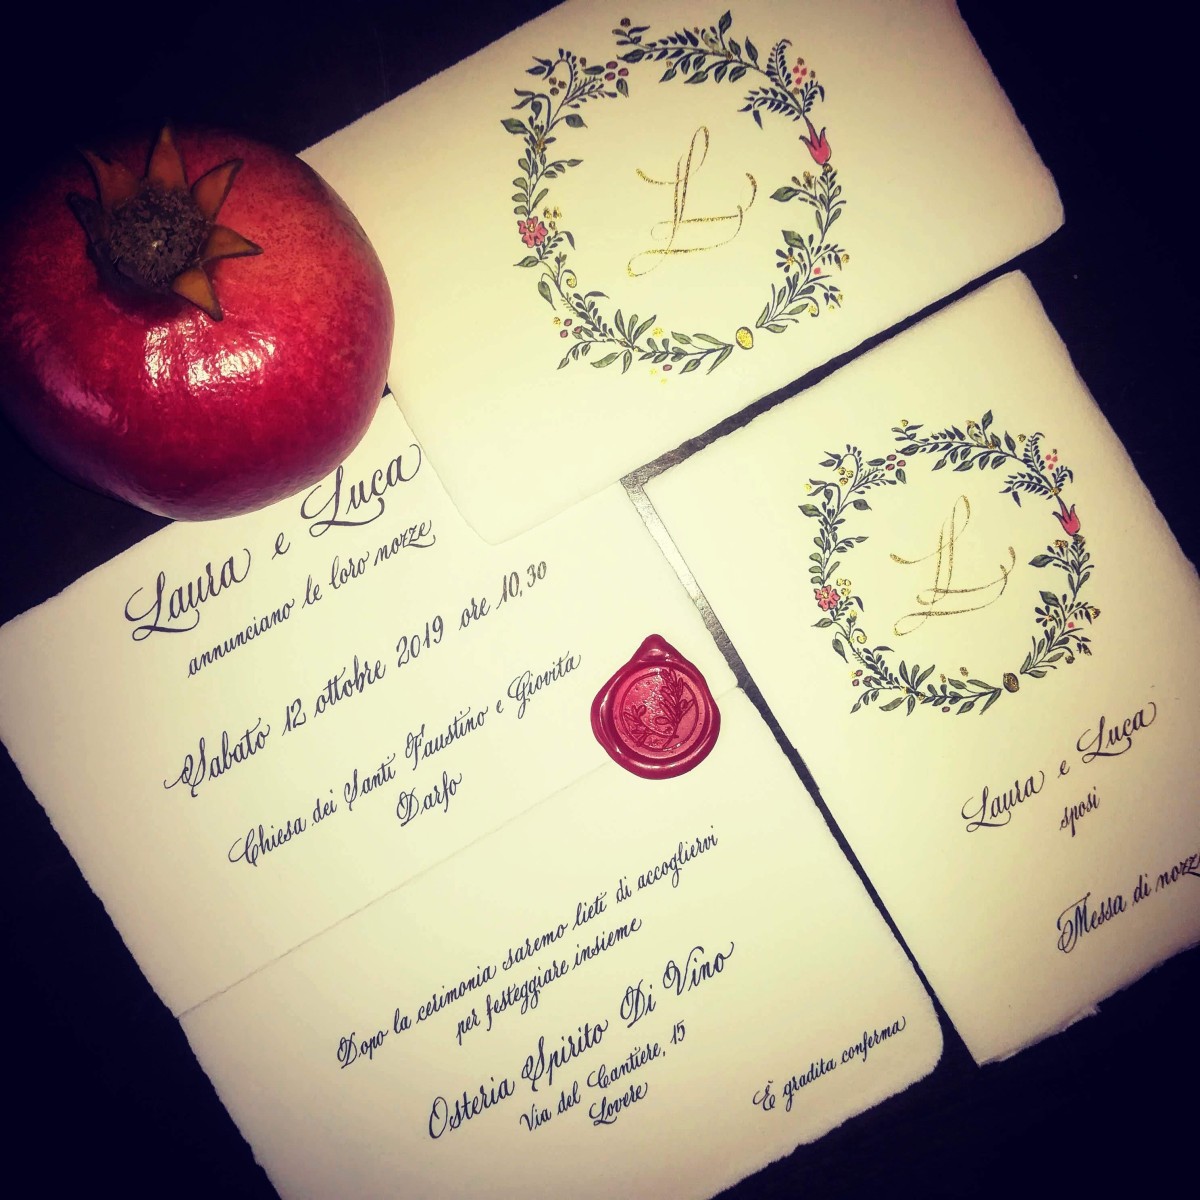 L
Laura e Luca
annunciano le loro nozze
Sabato 12 ottobre 2019 ore 10,30
Chiesa dei Santi Faustino e Giovita
Darfo
Dopo la cerimonia saremo lieti di accogliervi
per festeggiare insieme
Osteria Spirito Di Vino
Via del Cantiere, 15
Lovere
È gradita conferma
L
Laura e Luca
sposi
Messa di nozze